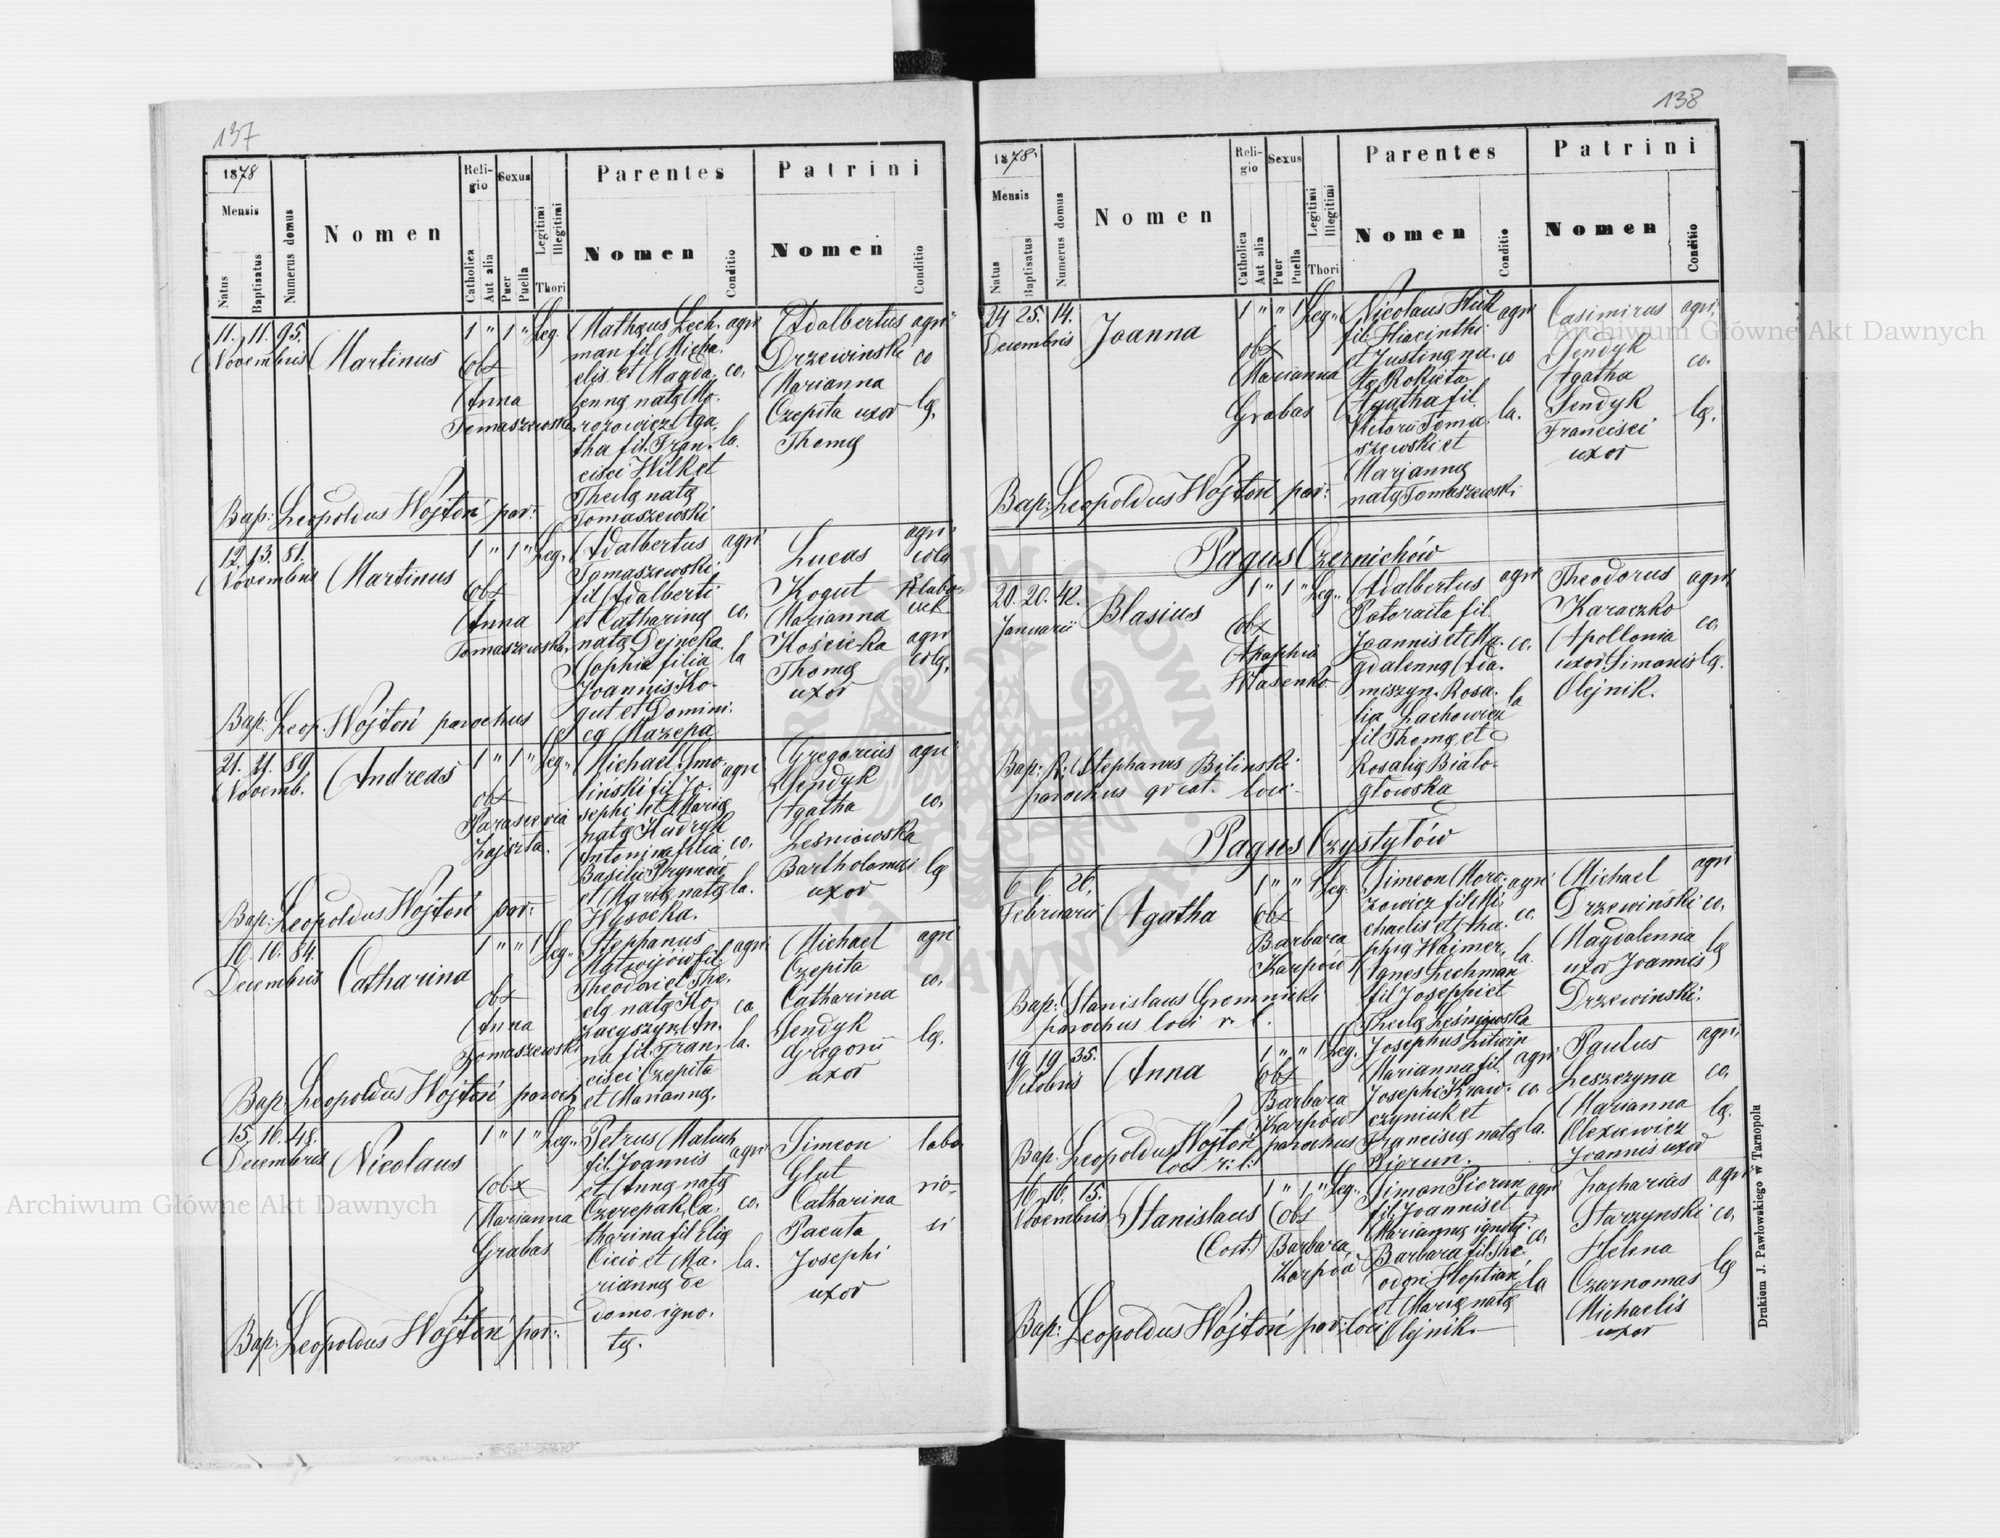 137
1878
Mensis
Natus
Baptisatus
Numerus domus
Nomen
Religio
Catholica
Aut alia
Sexus
Puer
Puella
Legitimi
Illegitimi
Thori
Parentes
Nomen
Conditio
Patrini
Nomen
Conditio
11. 11. 95.
Novembris
Martinus
1 " 1 " Leg.
obs
Anna
Tomaszewska
Matheus Lech-
man fil. Micha-
elis et Magda-
lenne
Aga-
tha fil. Fran-
cisci Wilk et
Thecle nate
Tomaszewski
agri
co,
la.
Adalbertus
Drzewinski
Marianna
Czepita uxor
Thome
agri
co
lg.
Bap: Leopoldus Wojtoń par:
12. 13. 81.
Novembris
Martinus
1 " 1 " Leg.
obs
Anna
Tomaszewska
Adalbertus
Tomaszewski
fil Adalberti
et Catharine
nate Dejneka
Sophia filia
Joannis Ko-
gut et Domini-
ce Mazepa
agri
co,
la
Lucas
Kogut
Marianna
Kościcka
Thome
uxor
agri
cola
agri
cole,
Bap: Leop. Wojtoń parochus
21. 21. 89.
Novemb.
Andreas
1 " 1 " Leg.
obs
Parascevia
Zajszta.
Michael Smo-
linski fil Jo-
sephi et Marie
nate Kudryk
Antonina filia
Basilii
et Marie nate
Wysocka.
agri
co,
la.
Gregorius
Sendyk
Agatha
Leśniowska
Bartholomei
uxor
agri
co,
lg
Bap: Leopoldus Wojtoń par:
10. 10. 84.
Decembris
Catharina
1 " " 1 Leg.
obs
Anna
Tomaszewski
Stephanus
Matwijów fil
Theodori et The-
cle nate Ko-
zaczyszyn An-
na fil. Fran-
cisci Czepita
et Marianne.
agri
co
la.
Michael
Czepita
Catharina
Sendyk
Gregorii
uxor
agri
co,
lg.
Bap: Leopoldus Wojtoń paroch
15. 16. 48.
Decembris
Nicolaus
1 " 1 " Leg.
obs
Marianna
Grabas
Petrus Maluch
fil. Joannis
et Anne nate
Czerepak Ca-
tharina fil Elie
Cicio et Ma-
rianne de
domo igno-
te.
agri
co,
la.
Simeon
Glut
Catharina
Pacuta
Josephi
uxor
labo
rio-
si
Bap: Leopoldus Wojtoń par:
138
1878.
Mensis
Natus
Baptisatus
Numerus domus
Nomen
Religio
Catholica
Aut alia
Sexus
Puer
Puella
Legitimi
Illegitimi
Thori
Parentes
Nomen
Conditio
Patrini
Nomen
Conditio
24 25. 14.
Decembris
Joanna
1 " " 1 Leg.
obs
Marianna
Grabas
Nicolaus Wilk
fil. Hiacinthi
et Justine na-
te Rokieta
Agatha fil.
Victorii Toma-
szewski et
Marianne
nate Tomaszewski
agri
co
la.
Casimirus
Sendyk
Agatha
Sendyk
Francisci
uxor
agri,
co.
lg.
Bap: Leopoldus Wojtoń par:
Pagus Czernichów
20. 20. 42.
Januarii
Blasius
1 " 1 " Leg.
obs
Adalbertus
Patoraita fil
Joannis et Ma-
gdalenne Ada-
miszyn. Rosa-
lia Lachowicz
fil Thome et
Rosalie Biało-
głowska
agri
co.
la
Theodorus
Karaczko
Apollonia
uxor Simonis
Olejnik.
agri
co,
lg.
Bap: R: Stephanus Biliński
parochus gr. cat. loci.
Pagus Czystyłów
6 6. 26.
Februarii
Agatha
1 " " 1 Leg.
obs
Barbara
Karpów
Simeon Moro-
zowicz fil Mi-
chaelis et Aha-
phia Waimer,
Agnes Lechman
fil Joseppi et
Thecle Leśniowska
agri
co.
la.
Michael
Drzewiński
Magdalenna
uxor Joannis
Drzewinski.
agri
co,
lg
Bap: Stanislaus Gromnicki
parochus loci r. l.
19 19 35.
Octobris
Anna
1 " " 1 Leg.
obs
Barbara
Karpów
Josephus Litwin
Marianna fil.
Josephi Kraw-
czyniuk et
Francisce nate
Piorun.
agri
co.
la.
Paulus
Leszczyna
Marianna
Olexiewicz
Joannis uxor
agri,
co,
lg.
Bap: Leopoldus Wojtoń parochus
loci r: l:
16. 16. 15.
Novembris
Stanislaus
(Cost.)
1 " 1 " Leg.
obs
Barbara
Karpów
Simon Piorun
fil. Joannis et
Marianne ignote.
Barbara fil The-
odori Hoptian
et Marie nate
Olejnik.
agri
co,
la
Zacharias
Starzynski
Helena
Czarnomas
Michaelis
uxor
agri
co,
lg
Bap: Leopoldus Wojtoń par: loci
Drukiem J. Pawłowskiego w Tarnopolu
Archiwum Główne Akt Dawnych
Archiwum Główne Akt Dawnych